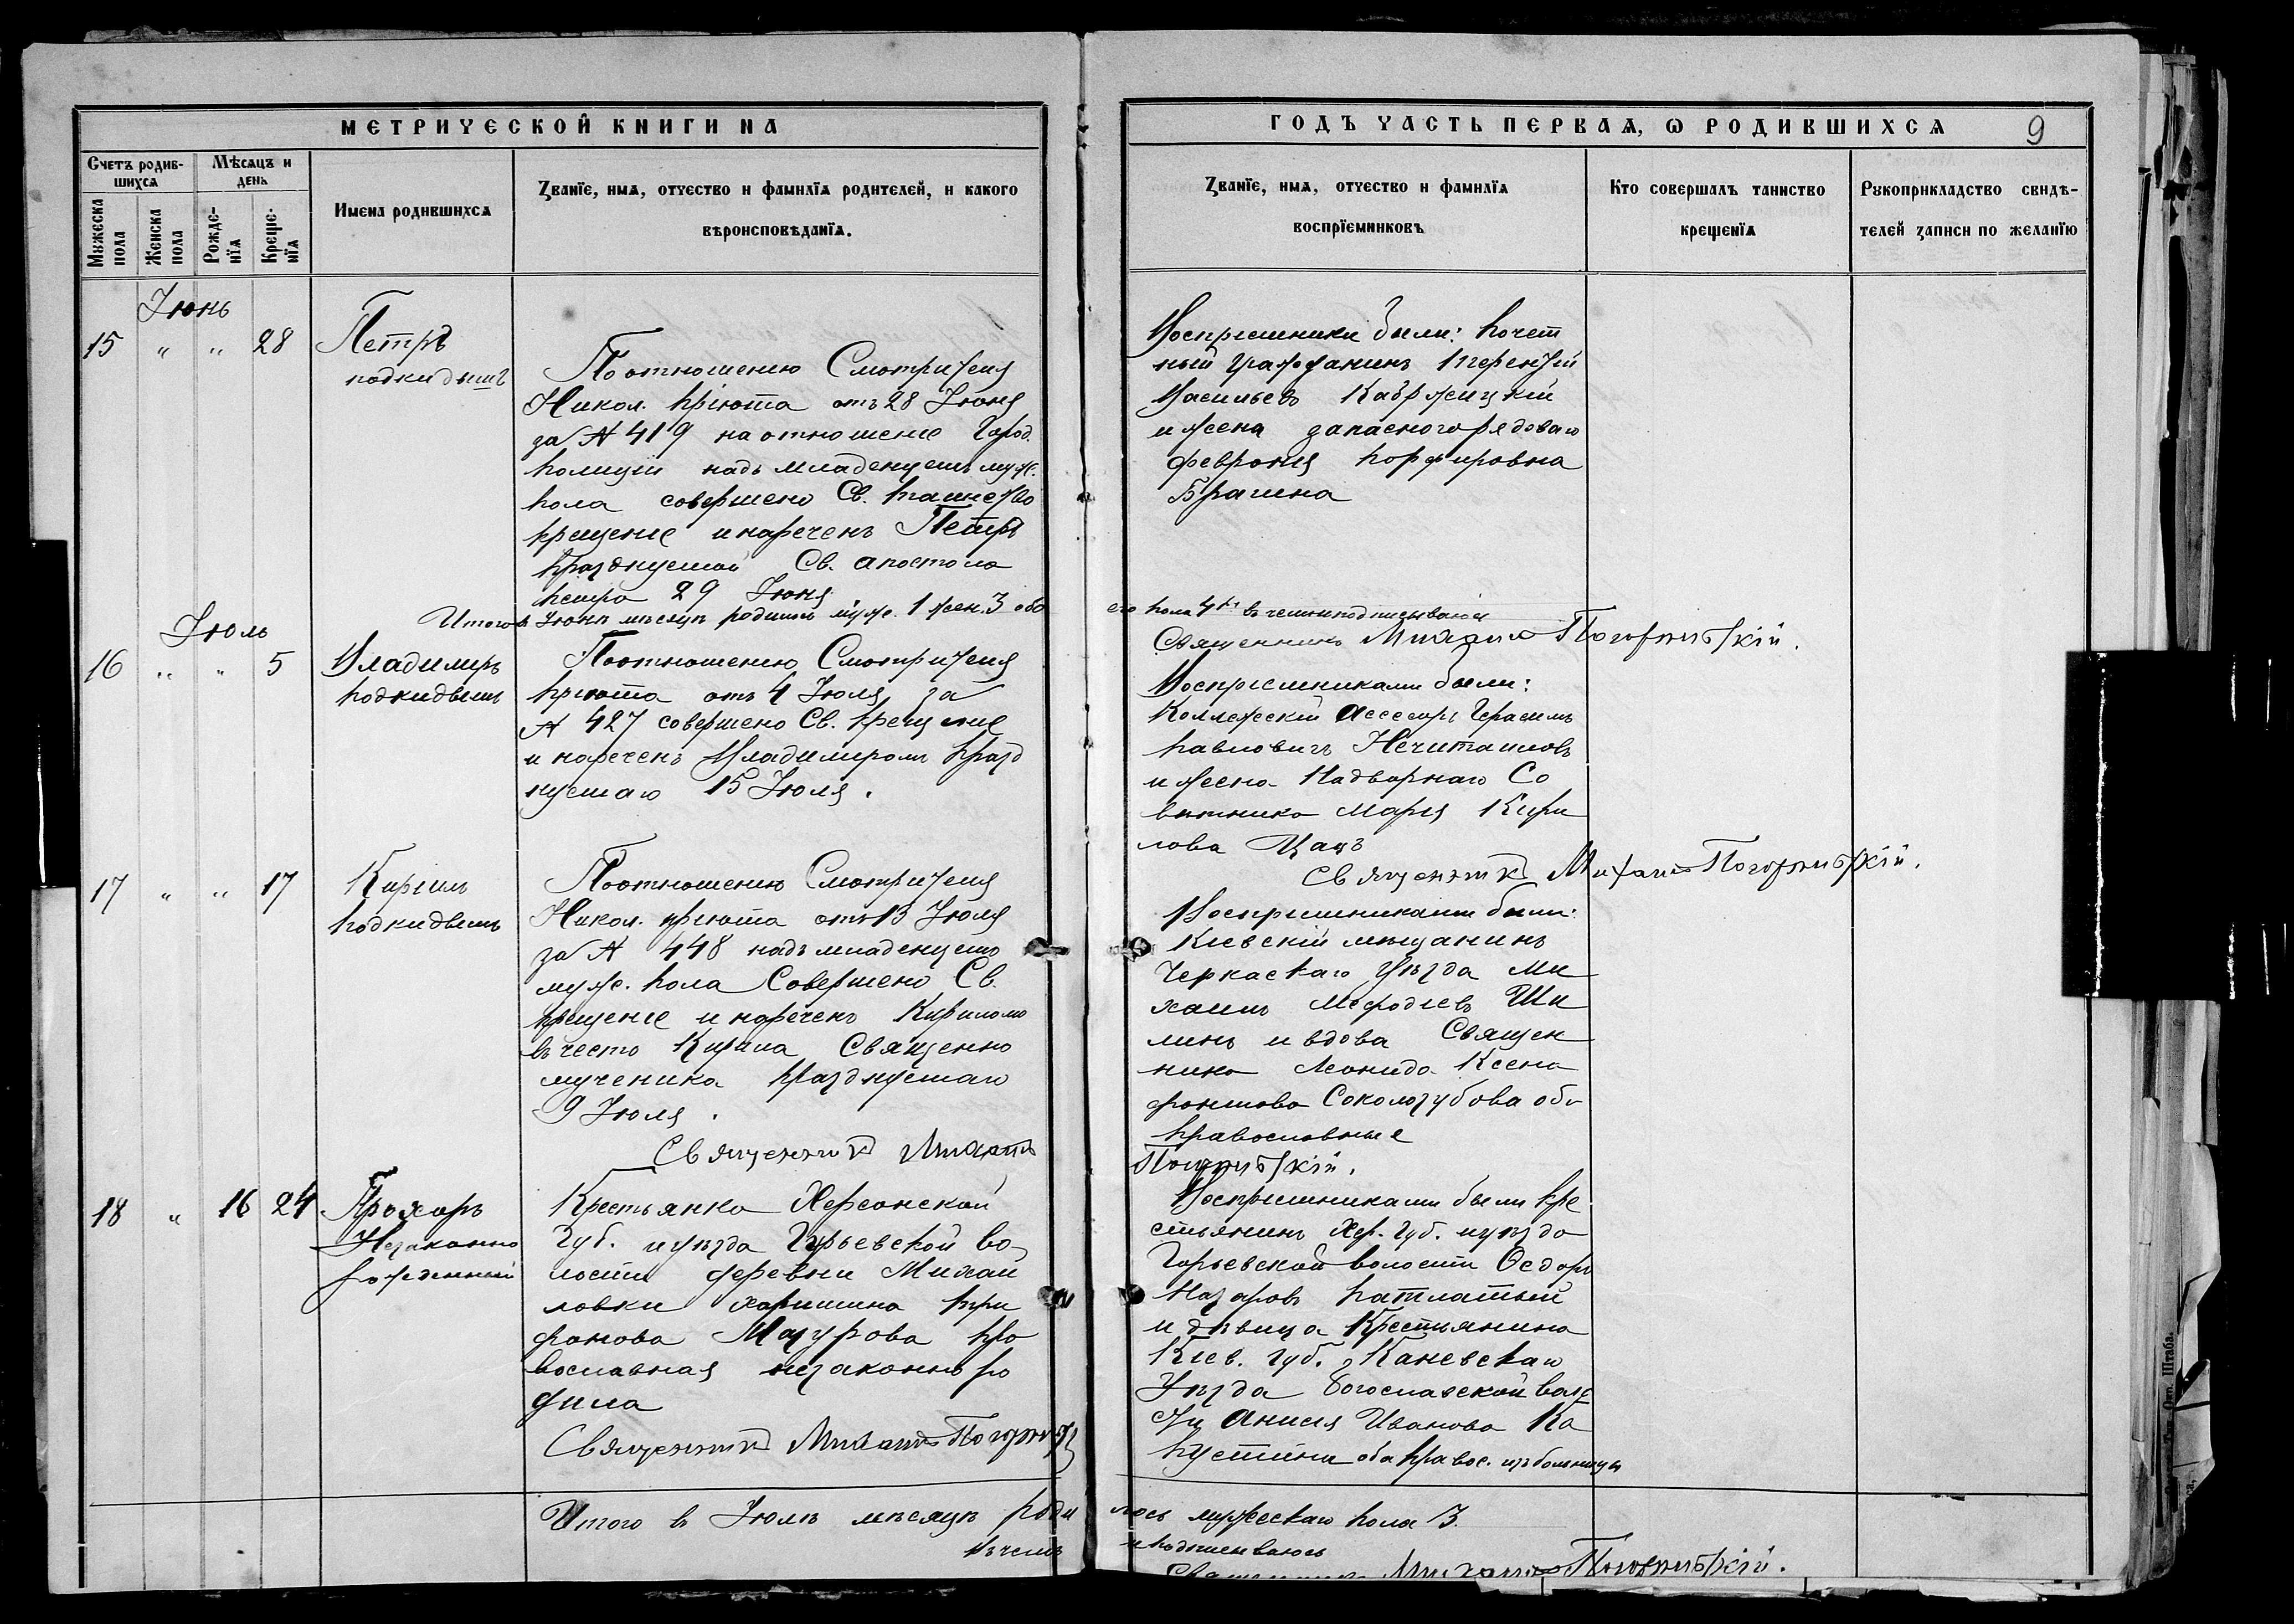 МЕТРИЧЕСКОЙ КНИГИ НА
ГОДЪ ЧАСТЬ ПЕРВАЯ, Ѡ РОДИВШИХСЯ
9
Счетъ родив-
шихся
Мѣсяцъ и
день
Мужеска
пола
Женска
пола
Рожде-
нїя
Креще-
нїя
Имена родившихся
Званїе, имя, отчество и фамилїя родителей, и какого
вѣроисповѣданїя.
Званїе, имя, отчество и фамилїя
воспрїемниковъ
Кто совершалъ таинство
крещенїя
Рукоприкладство свидѣ-
телей записи по желанїю
Іюнь
15 " " 28
Петръ
подкидышъ
По отношенію Смотрителя
Никол. пріюта отъ 28 Іюня
за № 419 на отношеніе Город.
полиціи надъ младенцемъ муж.
пола совершено Св. таинство
крещеніе и нареченъ Петръ
празднуемой Св. апостола
Петра 29 Іюня
Воспріемники были: почет
ный гражданинъ Терентій
Васильевъ
и жена запасного рядоваго
Феврония Порфировна
Брагина
Итого въ Іюнѣ мѣсяцѣ родилось муж. 1 жен. 3 обо
его пола 4 въ чемъ подписываюсь
Священникъ Михаилъ Погорѣльскій.
Іюль
16 " " 5
Владимиръ
подкидышъ
По отношенію Смотрителя
пріюта отъ 4 Іюля за
№ 427 совершено Св. крещеніе
и нареченъ Владимиромъ празд
нуемаго 15 Іюля.
Воспріемниками были:
Коллежскій Ассесоръ Герасимъ
Павловичъ Нечитайловъ
и жена Надворнаго Со
вѣтника Марія Кири
лова Цацъ
Священникъ Михаилъ Погорѣльскій.
17 " " 17
Кирилъ
подкидышъ
По отношенію Смотрителя
Никол. пріюта отъ 13 Іюля
за № 448 надъ младенцемъ
муж. пола Совершено Св.
крещеніе и нареченъ Кириломъ
въ честь Кирила Священно
мученика празднуемаго
9 Іюля.
Священникъ Михаилъ
Погорѣльскій.
Воспріемниками были:
Кіевскій мѣщанинъ
Черкаскаго уѣзда Ми
хаилъ Мефодіевъ Ши
линъ и вдова Священ
ника Леонида Ксено
фонтова Сокологубова оба
православные
18 " 16 24
Прохоръ
Незаконно
рожденный
Крестьянка Херсонской
Губ. и уѣзда Гурьевской во
лости деревни Михай
ловки Харитина Три
фонова Мазурова пра
вославная незаконно ро
дила
Священникъ Михаилъ
Воспріемниками были кре
стьянинъ Хер. губ. и уѣзда
Гурьевской волости Ѳедоръ
Назаровъ Патлатый
и дѣвица Крестьянина
Кіев. губ. Каневскаго
Уѣзда Богославской волос
ти Анисія Иванова Ка
пустина оба правос. изъ больницы
Итого въ Іюлѣ мѣсяцѣ роди
лось мужескаго пола 3.
въ чемъ
и подписываюсь
Священникъ Михаилъ Погорѣльскій.